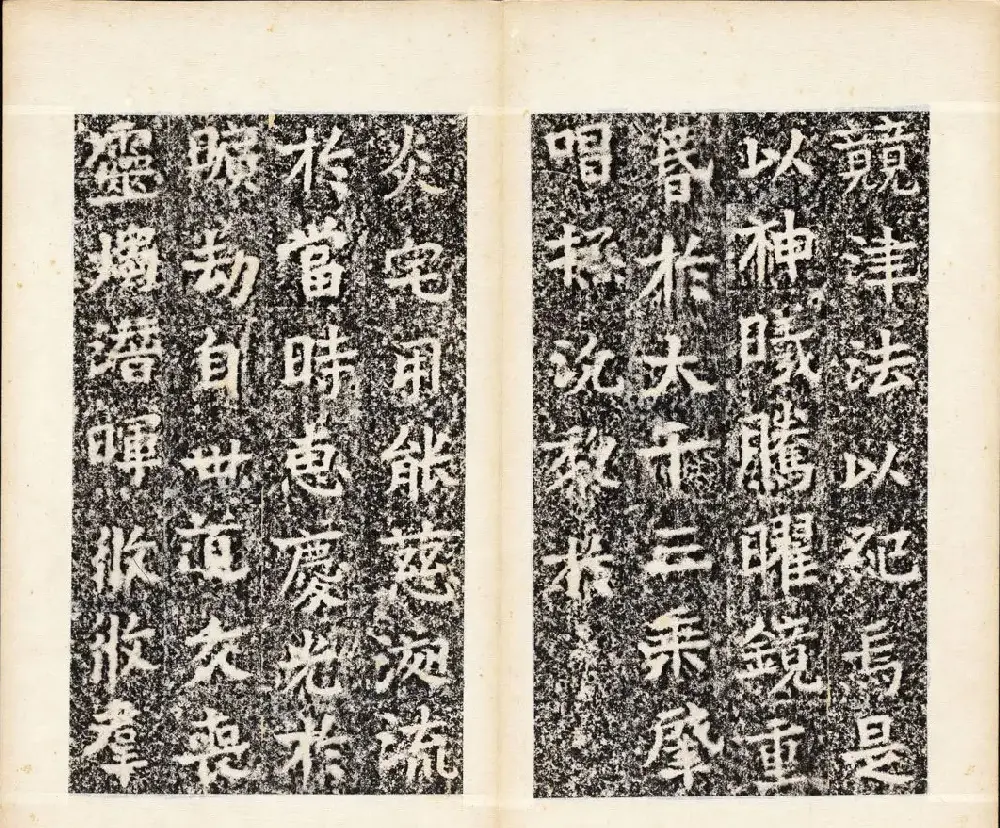 競津法以紀焉是
以神曦騰曜鏡重
昏於大千三乘肇
唱拯沉黎於
火宅用能慈流
於當時惠慶光於
曠劫自世道交喪
靈燭潛暉攸攸羣